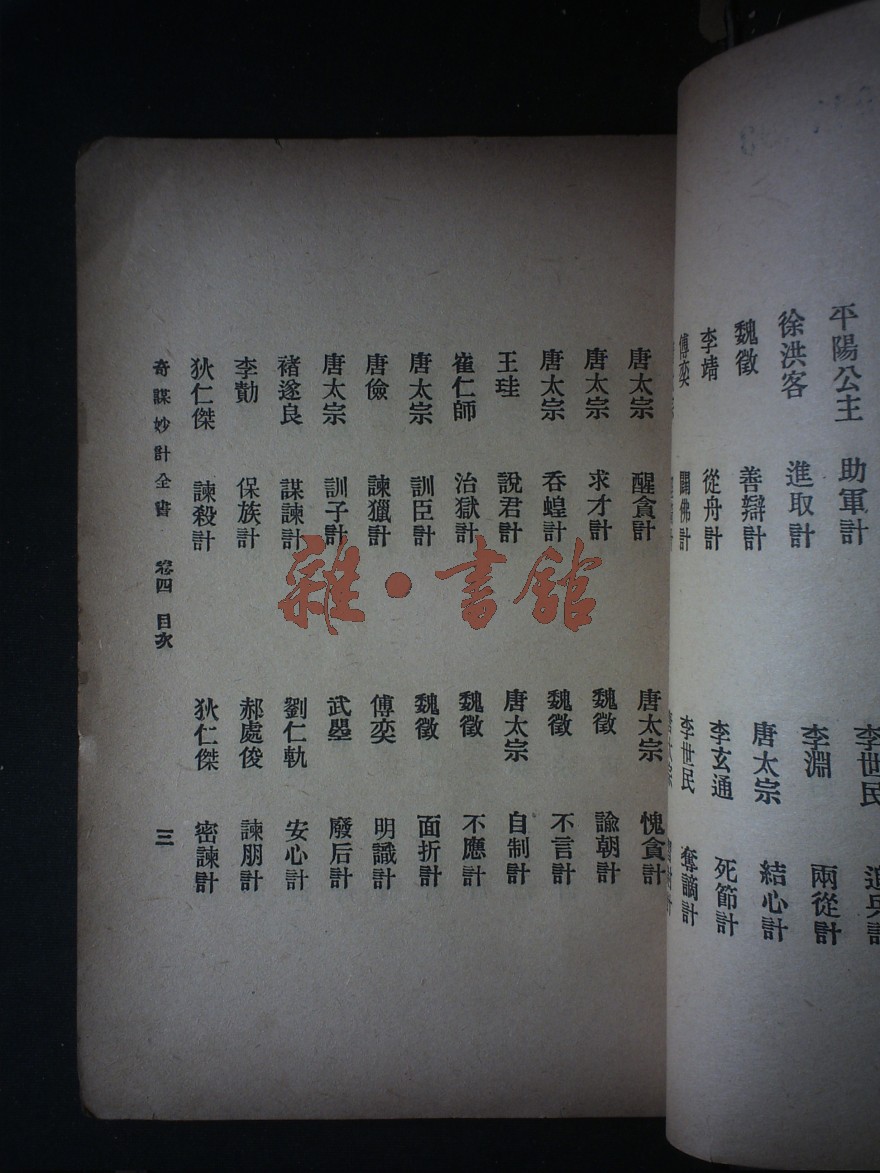 平陽公主 助軍計 李世民
徐洪客 進取計 李淵 兩從計
魏徵 善辯計 唐太宗 結心計
李靖 從舟計 李玄通 死節計
傅奕 闢佛計 李世民 奪謫計
唐太宗 醒貪計 唐太宗 愧貪計
唐太宗 求才計 魏徵 諭朝計
唐太宗 吞蝗計 魏徵 不言計
王珪 說君計 唐太宗 自制計
崔仁師 治獄計 魏徵 不應計
唐太宗 訓臣計 魏徵 面折計
唐儉 諫獵計 傅奕 明識計
唐太宗 訓子計 武曌 廢后計
褚遂良 謀諫計 劉仁軌 安心計
李勣 保族計 郝處俊 諫朋計
狄仁傑 諫殺計 狄仁傑 密諫計
奇謀妙計全書 卷四 目次 三
雜·書館